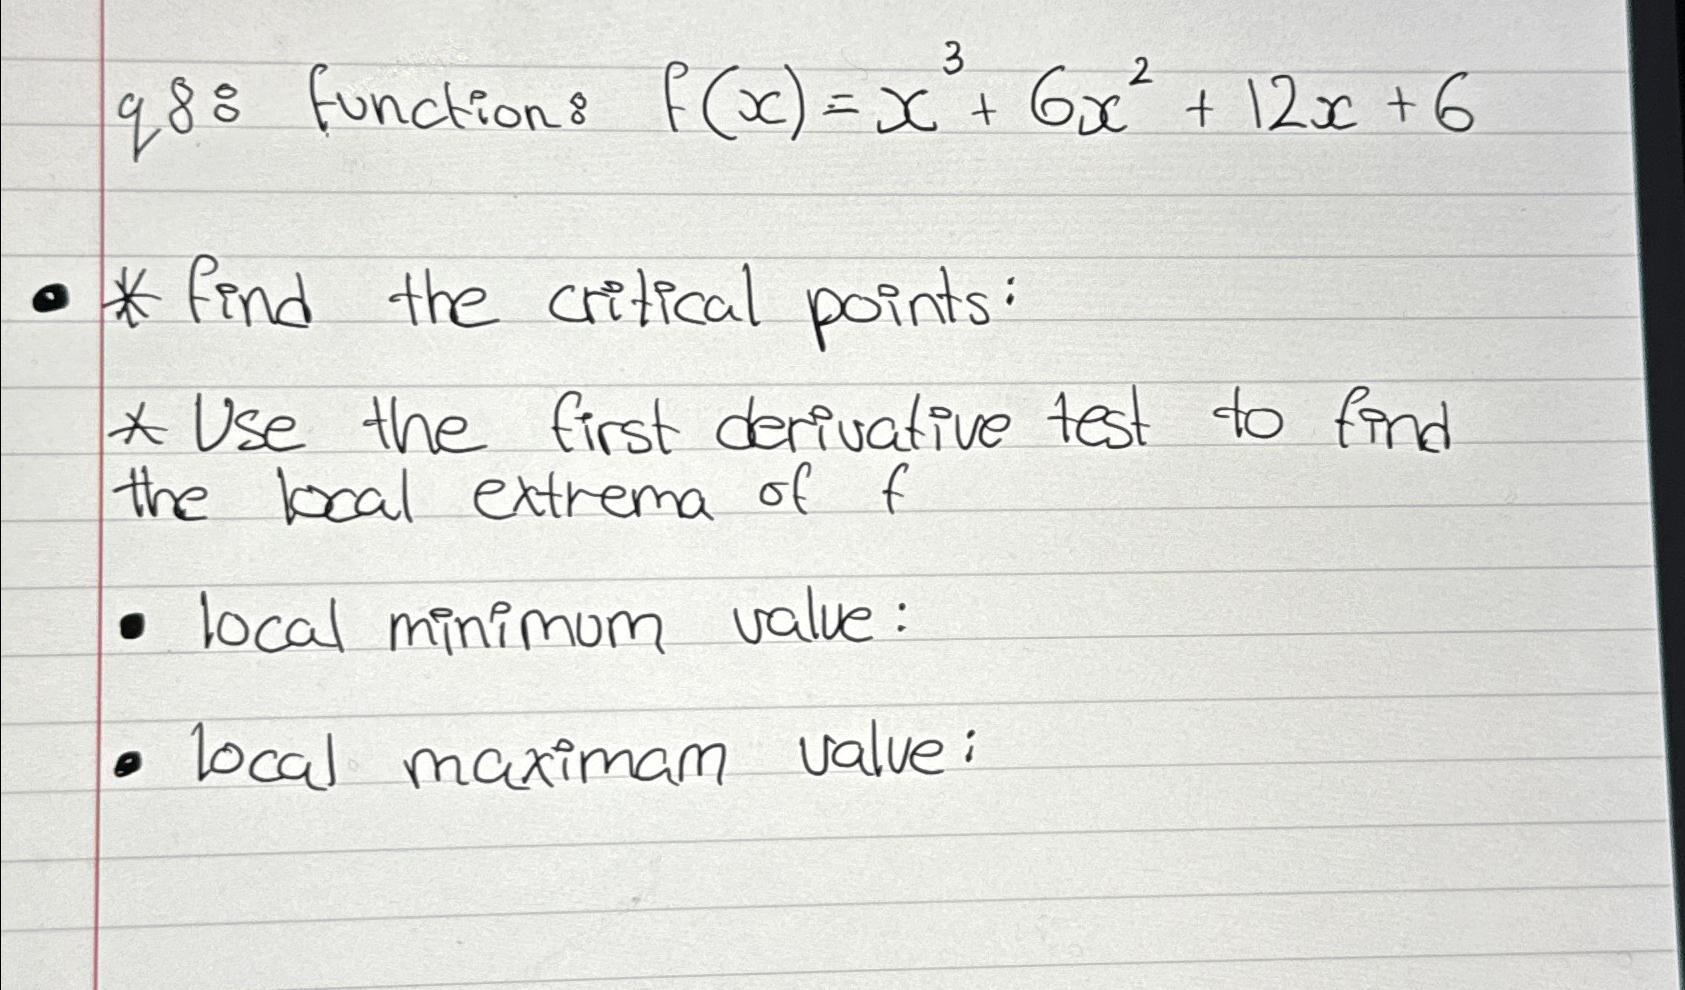 q8: function: f(x) = x³ + 6x² + 12x + 6
• * find the critical points:
* Use the first derivative test to find
the local extrema of f
• local minimum value:
• local maximam value: